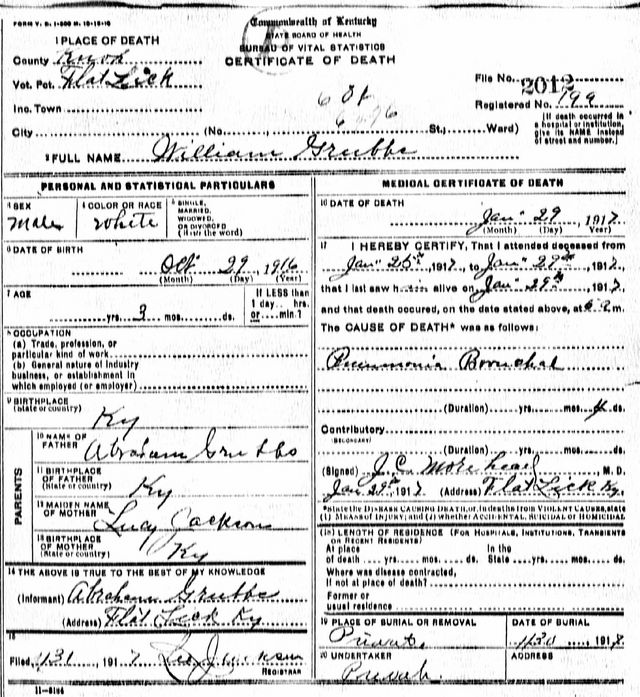 FORM V. S. 1-500 M. 10-15-10
Commonwealth of Kentucky
STATE BOARD OF HEALTH
BUREAU OF VITAL STATISTICS
CERTIFICATE OF DEATH
1 PLACE OF DEATH
County Knox
Vot. Pct. Flat Lick
Inc. Town
City (No. St., Ward)
File No. 2012
Registered No. 199
[If death occurred in a hospital or institution, give its NAME instead of street and number.]
2 FULL NAME William Grubbs
PERSONAL AND STATISTICAL PARTICULARS
3 SEX Male
4 COLOR OR RACE White
5 SINGLE, MARRIED, WIDOWED, OR DIVORCED (Write the word)
6 DATE OF BIRTH
Oct 29, 1916
(Month) (Day) (Year)
7 AGE
yrs. 3 mos. ds.
If LESS than 1 day hrs. or min.?
8 OCCUPATION
(a) Trade, profession, or particular kind of work
(b) General nature of industry business, or establishment in which employed (or employer)
9 BIRTHPLACE (State or country) Ky
PARENTS
10 NAME OF FATHER Abraham Grubbs
11 BIRTHPLACE OF FATHER (State or country) Ky
12 MAIDEN NAME OF MOTHER Lucy Jackson
13 BIRTHPLACE OF MOTHER (State or country) Ky
14 THE ABOVE IS TRUE TO THE BEST OF MY KNOWLEDGE
(Informant) Abraham Grubbs
(Address) Flat Lick Ky
15
Filed 1/31, 1917 REGISTRAR
11-8184
MEDICAL CERTIFICATE OF DEATH
16 DATE OF DEATH
Jan" 29, 1917
(Month) (Day) (Year)
17 I HEREBY CERTIFY, That I attended deceased from
Jan" 25th, 1917, to Jan" 29th, 1917,
that I last saw h alive on Jan" 29th, 1917,
and that death occured, on the date stated above, at m.
The CAUSE OF DEATH* was as follows:
Pneumonia Bronchal
(Duration) yrs. mos. 4 ds.
Contributory
(SECONDARY)
(Duration) yrs. mos. ds.
(Signed) J. C. Morehead, M. D.
Jan 29th, 1917 (Address) Flat Lick Ky.
*State the DISEASE CAUSING DEATH, or, in deaths from VIOLENT CAUSES, state (1) MEANS OF INJURY; and (2) whether ACCIDENTAL, SUICIDAL or HOMICIDAL
18 LENGTH OF RESIDENCE (FOR HOSPITALS, INSTITUTIONS, TRANSIENTS OR RECENT RESIDENTS)
At place of death yrs. mos. ds. In the State yrs. mos. ds.
Where was disease contracted, If not at place of death?
Former or usual residence
19 PLACE OF BURIAL OR REMOVAL
DATE OF BURIAL
1/30, 1917
20 UNDERTAKER
ADDRESS